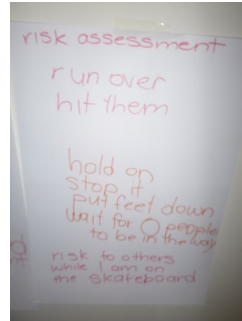 risk assessment
run over
hit them
hold on
stop it
put feet down
wait for 0 people
to be in the way
risk to others
while I am on
the skateboard